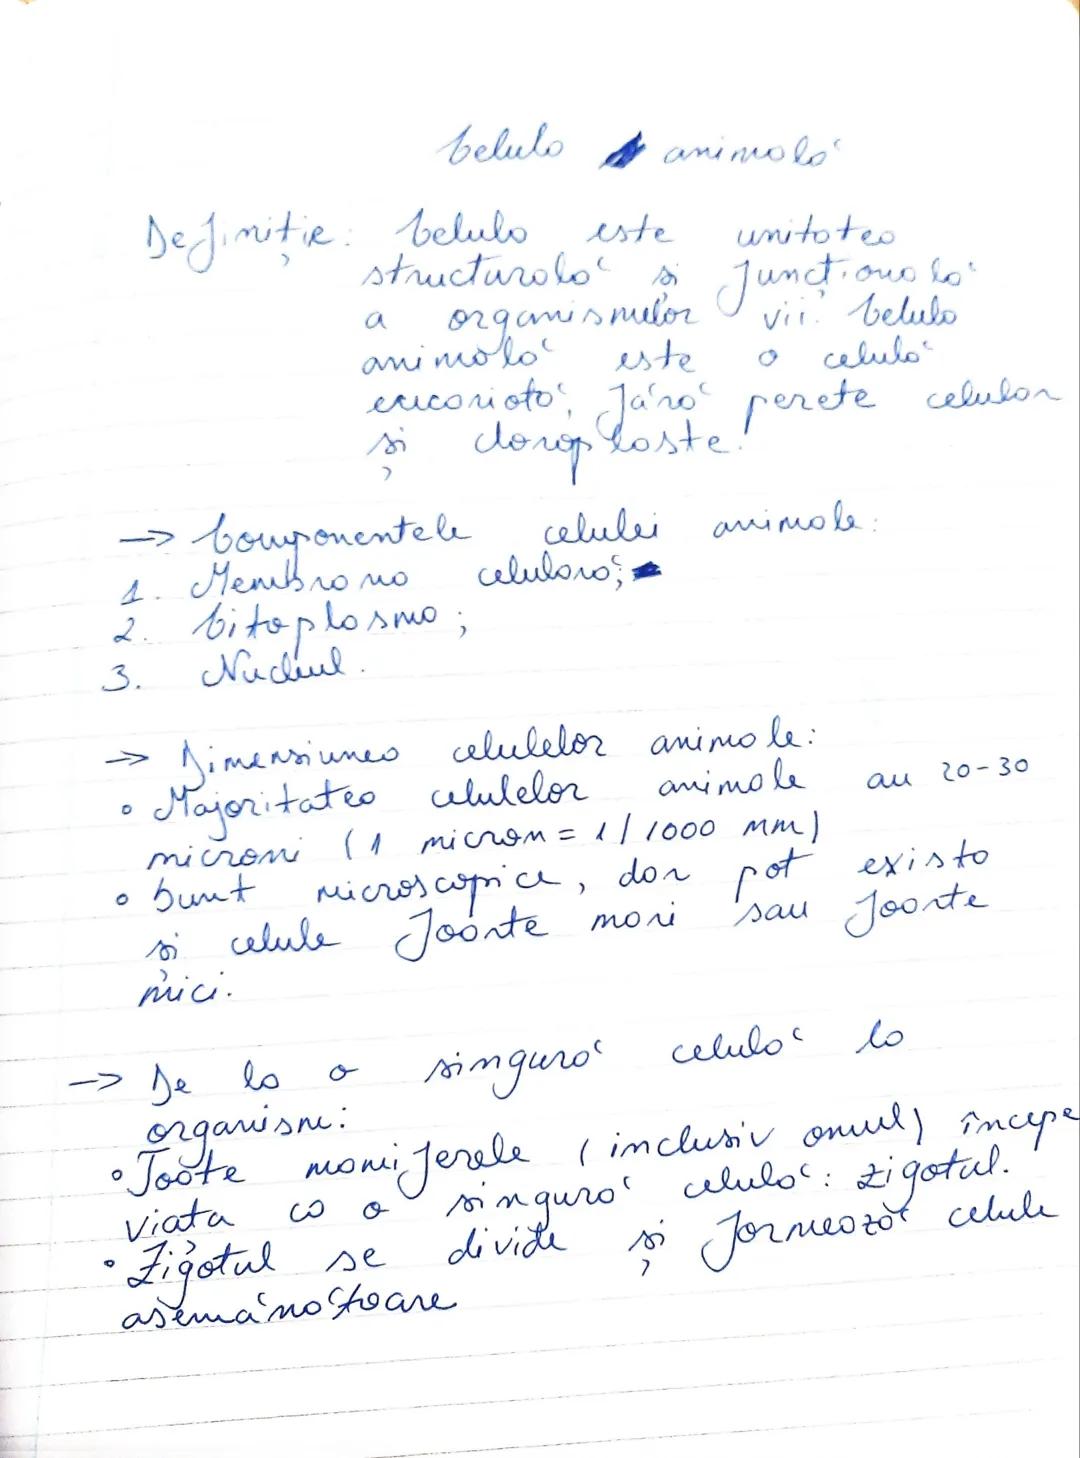 Celula animală
Definiție: Celula este unitatea
structurală și funcțională
a organismelor vii. Celula
animală este o celulă
eucariotă, fără perete celular
și cloroplaste.
→ Componentele celulei animale:
1. Membrana celulară;
2. Citoplasma;
3. Nucleul.
→ Dimensiunea celulelor animale:
• Majoritatea celulelor animale au 20-30
microni (1 micron = 1/1000 mm)
• Sunt microscopice, dar pot exista
și celule foarte mari sau foarte
mici.
→ De la o singură celulă la
organism:
• Toate mamiferele (inclusiv omul) începe
viața ca o singură celulă: zigotul.
• Zigotul se divide și formează celule
asemănătoare